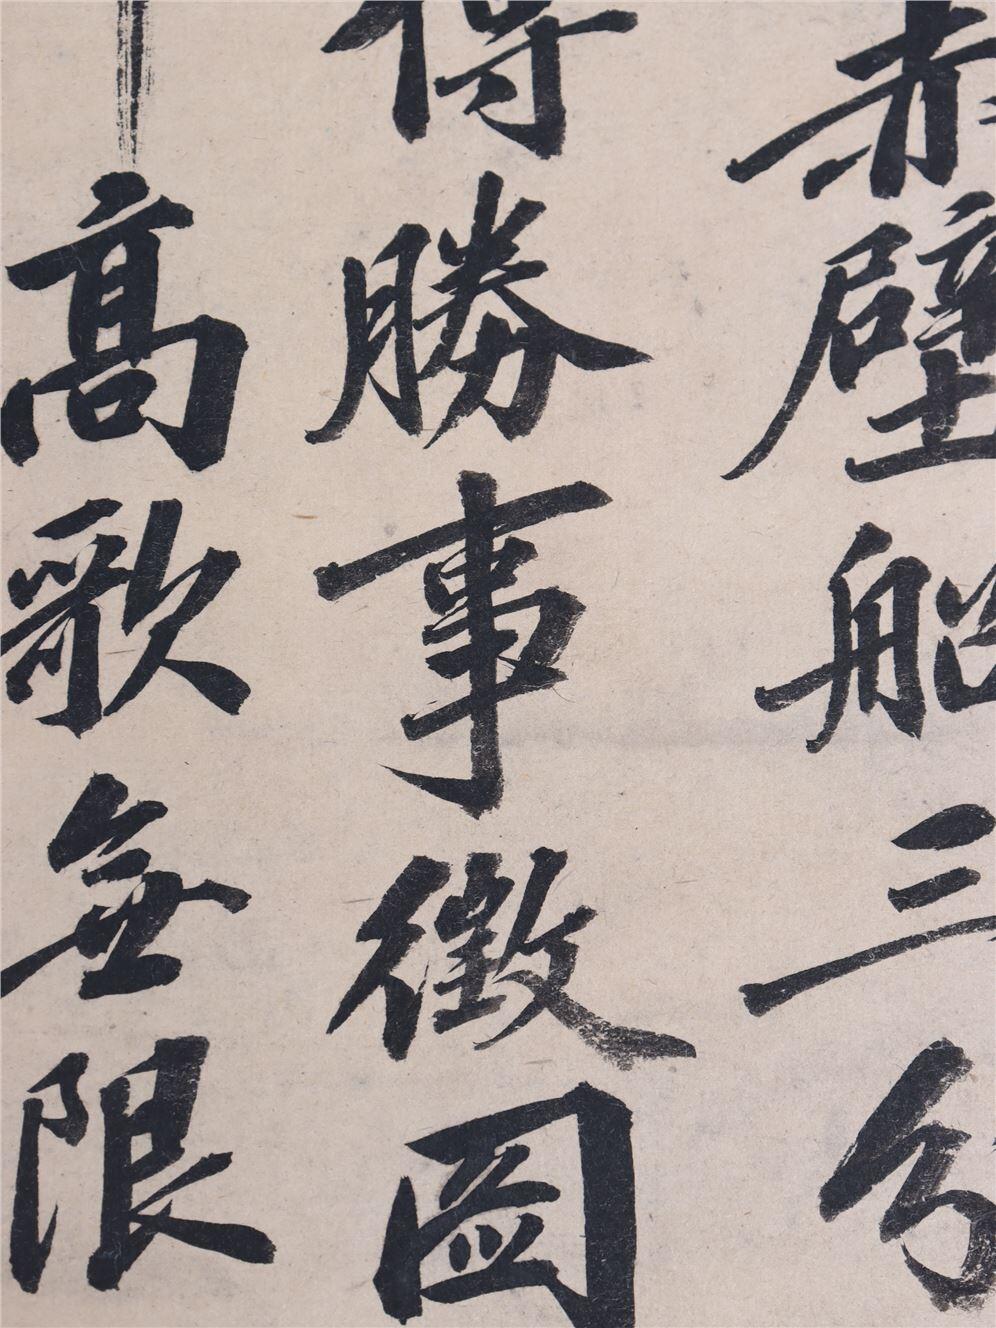 赤壁船三分
得勝事徵圖
高歌無限